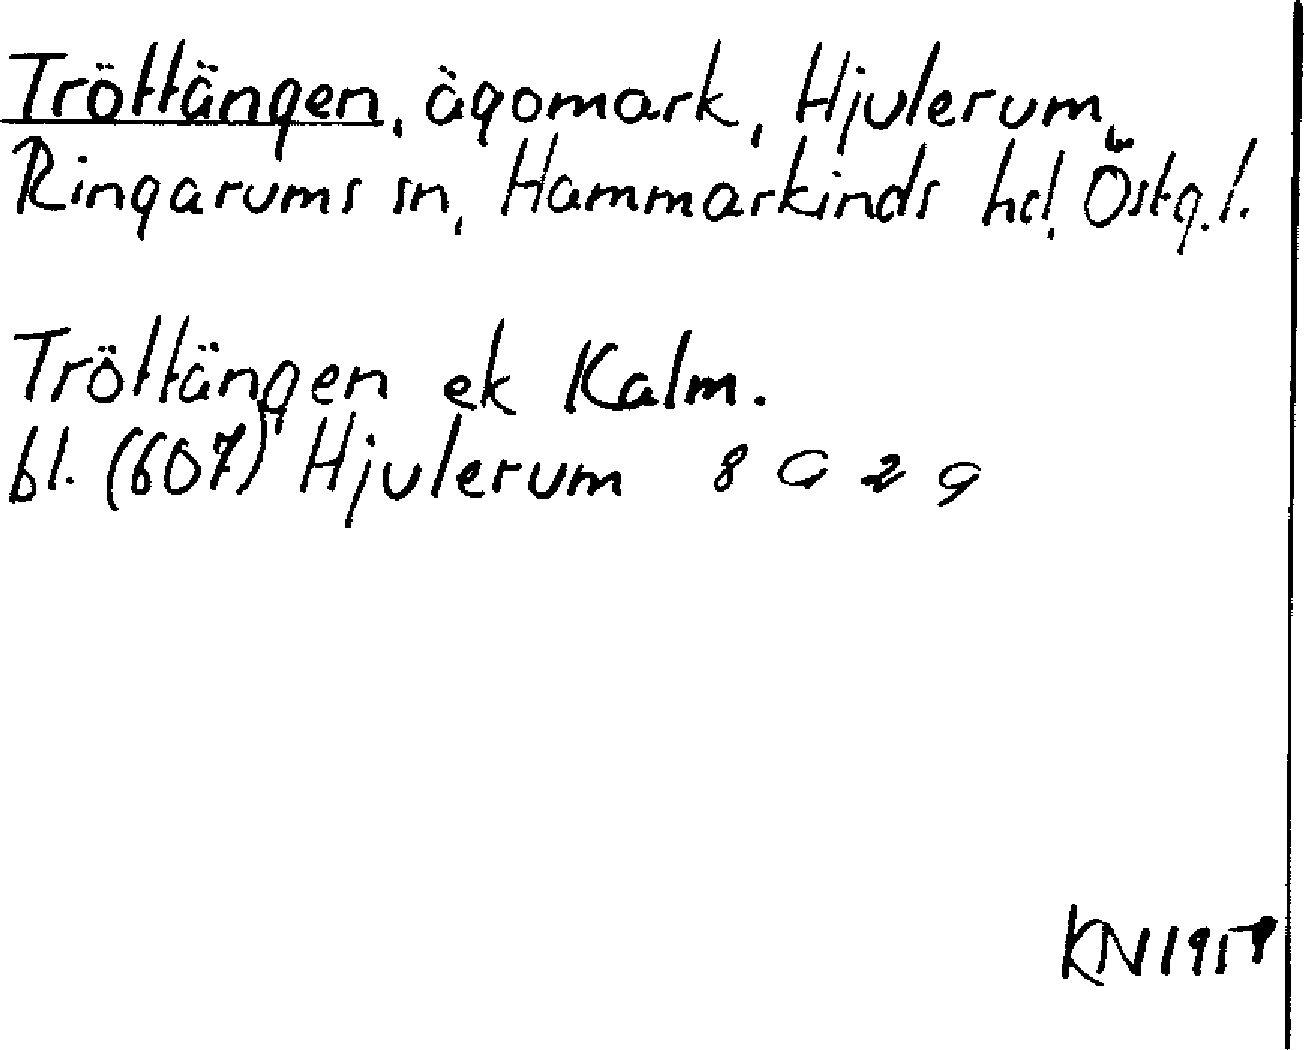 Tröttängen, ägomark, Hjulerum,
Ringarums sn, Hammarkinds hd, Östg.l.
Tröttängen ek Kalm.
bl. (607) Hjulerum 8 G 2 g